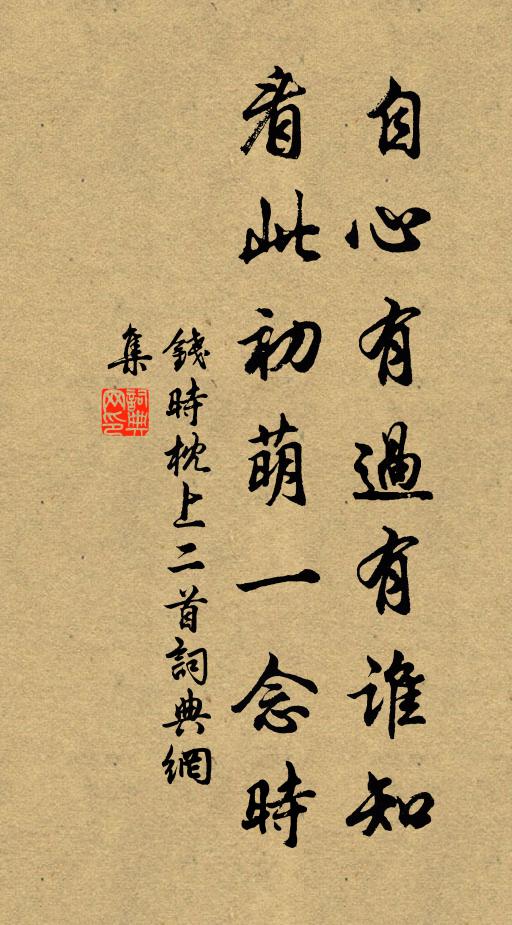 自心有過有誰知
看此初萌一念時
錢時枕上二首詞典網
集
詞典
網印